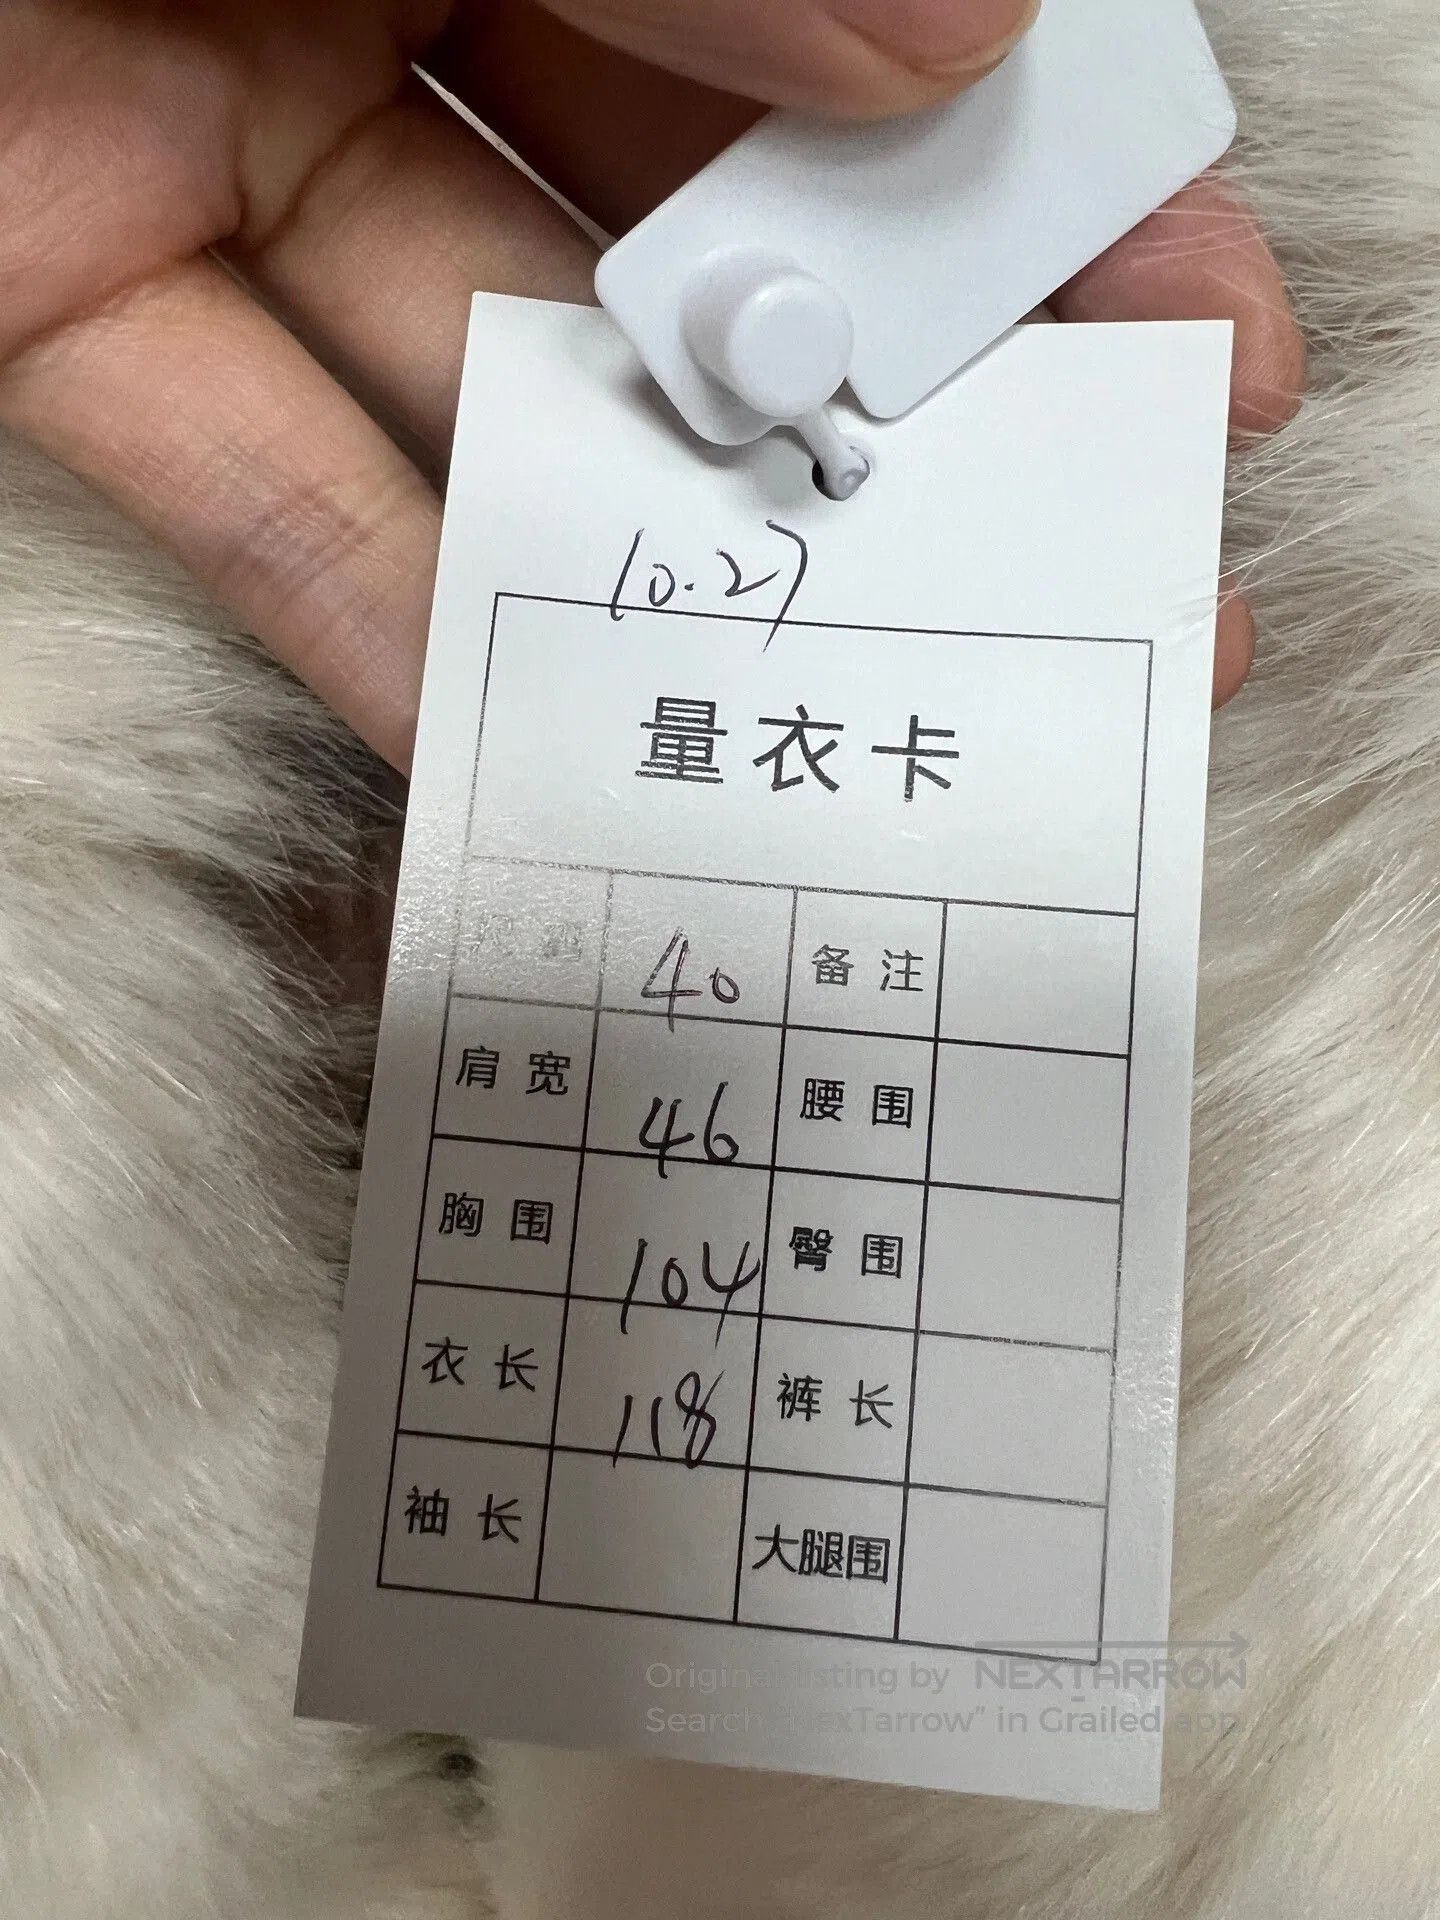 10.27
量衣卡
40 备注
肩宽 46 腰围
胸围 104 臀围
衣长 118 裤长
袖长 大腿围
Original listing by NEXTARROW
Search "NexTarrow" in Grailed app